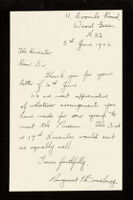 11, Coombe Road,
Wood Green,
N.22
5th June 1946
The Director
Dear Sir,
Thank you for your
letter of 4th June.
We are most appreciative
of whatever arrangements you
have made for our group to
visit the Museum. The 3rd
or 17th November would suit
us equally well.
Yours faithfully,
Margaret